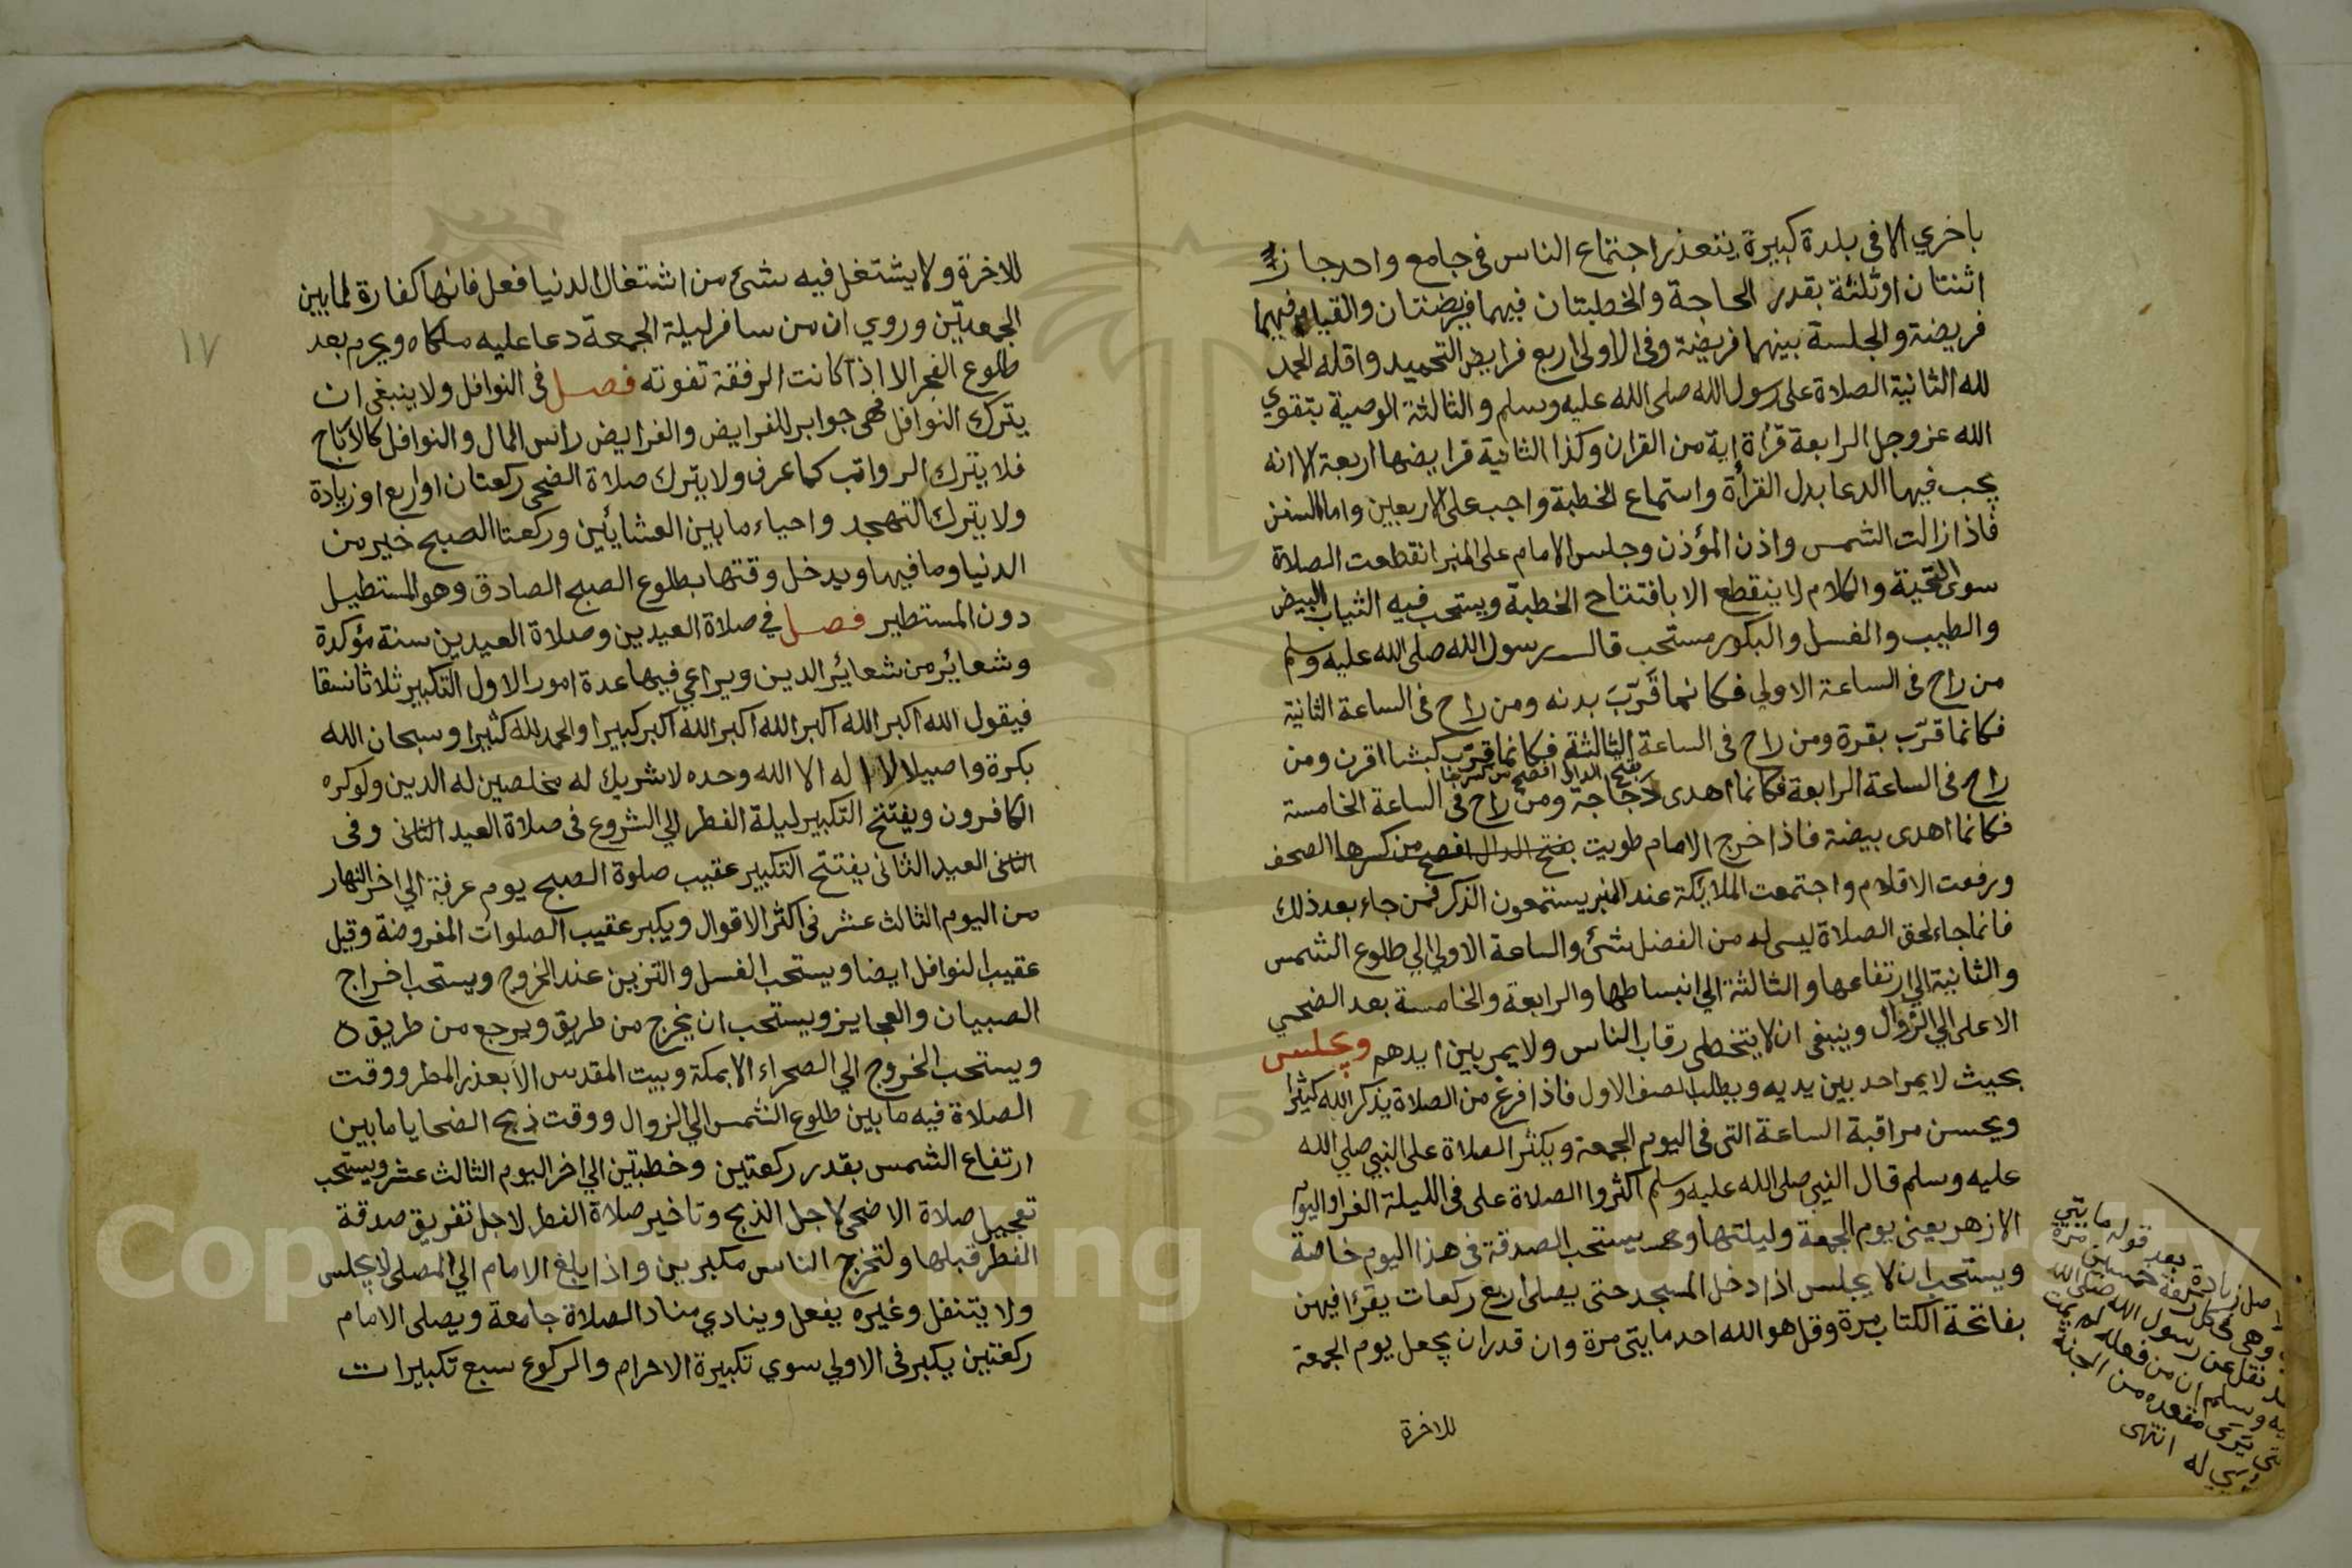 باخري الا في بلدة كبيرة يتعذر اجتماع الناس في جامع واحد جاز
اثنتان او ثلثة بقدر الحاجة والخطبتان فيهما فريضتان والقيام فيهما
فريضة والجلسة بينهما فريضة وفي الاولي اربع فرايض التحميد واقله الحمد
لله الثانية الصلاة على رسول الله صلى الله عليه وسلم والثالثة الوصية بتقوي
الله عز وجل الرابعة قرأة اية من القران وكذا الثانية فرايضها اربعة الا انه
يجب فيها الدعا بدل القرأة واستماع الخطبة واجب على الاربعين واما السنن
فاذا زالت الشمس واذن المؤذن وجلس الامام على المنبر انقطعت الصلاة
سوى التحية والكلام لا ينقطع الا بافتتاح الخطبة ويستحب فيه الثياب البيض
والطيب والغسل والبكور مستحب قال رسول الله صلى الله عليه وسلم
من راح في الساعة الاولي فكانما قَرّبَ بدنه ومن راح في الساعة الثانية
فكانما قرّب بقرة ومن راح في الساعة الثالثة فكانما قرّب كبشا اقرن ومن
بفتح الدال افصح من كسرها
راح في الساعة الرابعة فكانما اهدى دَجَاجة ومن راح في الساعة الخامسة
فكانما اهدى بيضة فاذا خرج الامام طويت بفتح الدال افصح من كسرها الصحف
ورفعت الاقلام واجتمعت الملايكة عند المنبر يستمعون الذكر فمن جاء بعد ذلك
فانما جاء لحق الصلاة ليس له من الفضل شئ والساعة الاولي الي طلوع الشمس
والثانية الي ارتفاعها والثالثة الي انبساطها والرابعة والخامسة بعد الضحي
الاعلى الي الزوال وينبغى ان لا يتخطى رقاب الناس ولا يمر بين ايدهم ويجلس
بحيث لا يمر احد بين يديه ويطلب الصف الاول فاذا فرغ من الصلاة يذكر الله كثيرا
ويحسن مراقبة الساعة التى في اليوم الجمعة ويكثر الصلاة على النبي صلي الله
عليه وسلم قال النبي صلى الله عليه وسلم اكثروا الصلاة على في الليلة الغرا واليوم
الازهر يعنى يوم الجمعة وليلتها يستحب الصدقة في هذا اليوم خاصة
ويستحب ان لا يجلس اذا دخل المسجد حتى يصلى اربع ركعات يقرا فيهن
بفاتحة الكتاب مرة وقل هو الله احد مايتى مرة وان قدر ان يجعل يوم الجمعة
للاخرة
زيادة بعد قوله مايتي
مرة
وهى في كل ركعة خمسين
نقل عن رسول الله صلى الله
وسلم ان من فعله لم يمت
يَرَى مقعده من الجنة
له انتهى
١٧
للاخرة ولا يشتغل فيه بشئ من اشتغال الدنيا فعل فانها كفارة لما بين
الجمعتين وروي ان من سافر ليلة الجمعة دعا عليه ملكاه ويحرم بعد
طلوع الفجر الا اذا كانت الرفقة تفوته فصل في النوافل ولا ينبغى ان
يترك النوافل فهى جوابر للفرايض والفرايض راس المال والنوافل كالارباح
فلا يترك الرواتب كما عرف ولا يترك صلاة الضحى ركعتان او اربع او زيادة
ولا يترك التهجد واحياء ما بين العشايئن وركعتا الصبح خير من
الدنيا وما فيها ويدخل وقتها بطلوع الصبح الصادق وهو المستطيل
دون المستطير فصل في صلاة العيدين وصلاة العيدين سنة مؤكدة
وشعائر من شعائر الدين ويراعي فيها عدة امور الاول التكبير ثلاثا نسقا
فيقول الله اكبر الله اكبر الله اكبر الله اكبر كبيرا والحمد لله كثيرا وسبحان الله
بكرة واصيلا لا اله الا الله وحده لا شريك له مخلصين له الدين ولو كره
الكافرون ويفتتح التكبير ليلة الفطر الي الشروع في صلاة العيد الثانى وفى
الثانى العيد الثانى يفتتح التكبير عقيب صلوة الصبح يوم عرفة الي اخر النهار
من اليوم الثالث عشر فى اكثر الاقوال ويكبر عقيب الصلوات المفروضة وقيل
عقيب النوافل ايضا ويستحب الغسل والتزين عند الخروج ويستحب اخراج
الصبيان والعجايز ويستحب ان يخرج من طريق ويرجع من طريق
ويستحب الخروج الي الصحراء الا بمكة وبيت المقدس الا بعذر المطر ووقت
الصلاة فيه ما بين طلوع الشمس الي الزوال ووقت ذبح الضحايا ما بين
ارتفاع الشمس بقدر ركعتين وخطبتين الي اخر اليوم الثالث عشر ويستحب
تعجيل صلاة الاضحى لاجل الذبح وتاخير صلاة الفطر لاجل تفريق صدقة
الفطر قبلها ولتخرج الناس مكبرين واذا بلغ الامام الي المصلى لا يجلس
ولا يتنفل وغيره يفعل وينادي مناد الصلاة جامعة ويصلى الامام
ركعتين يكبر فى الاولي سوي تكبيرة الاحرام والركوع سبع تكبيرات